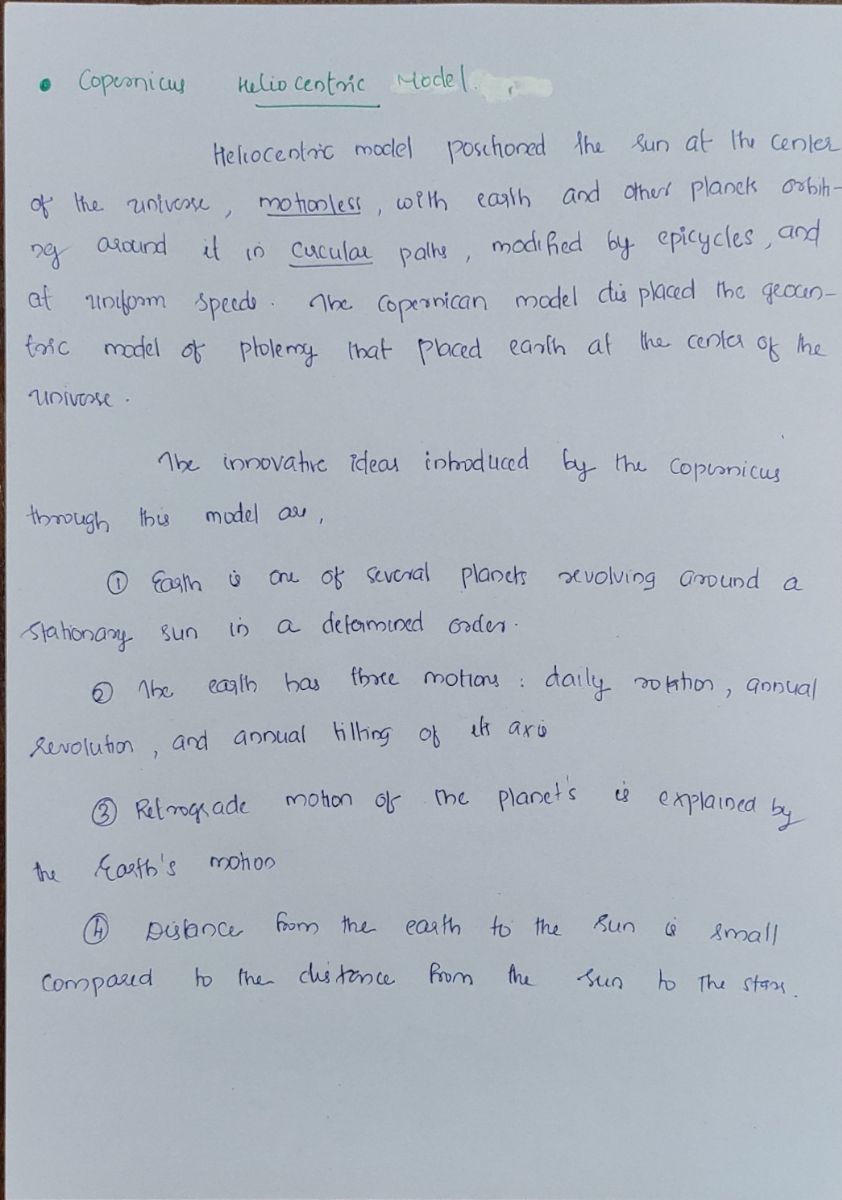 • Copernicus Heliocentric Model.
Heliocentric model positioned the sun at the center
of the universe, motionless, with earth and other planets orbiti-
ng around it in circular paths, modified by epicycles, and
at uniform speeds. The Copernican model displaced the geocen-
tric model of ptolemy that placed earth at the center of the
universe.
The innovative ideas introduced by the Copernicus
through this model are,
① Earth is one of several planets revolving around a
stationary sun in a determined order.
② The earth has three motions : daily rotation, annual
revolution, and annual tilting of its axis
③ Retrograde motion of the planet's is explained by
the Earth's motion
④ Distance from the earth to the sun is small
compared to the distance from the sun to the stars.